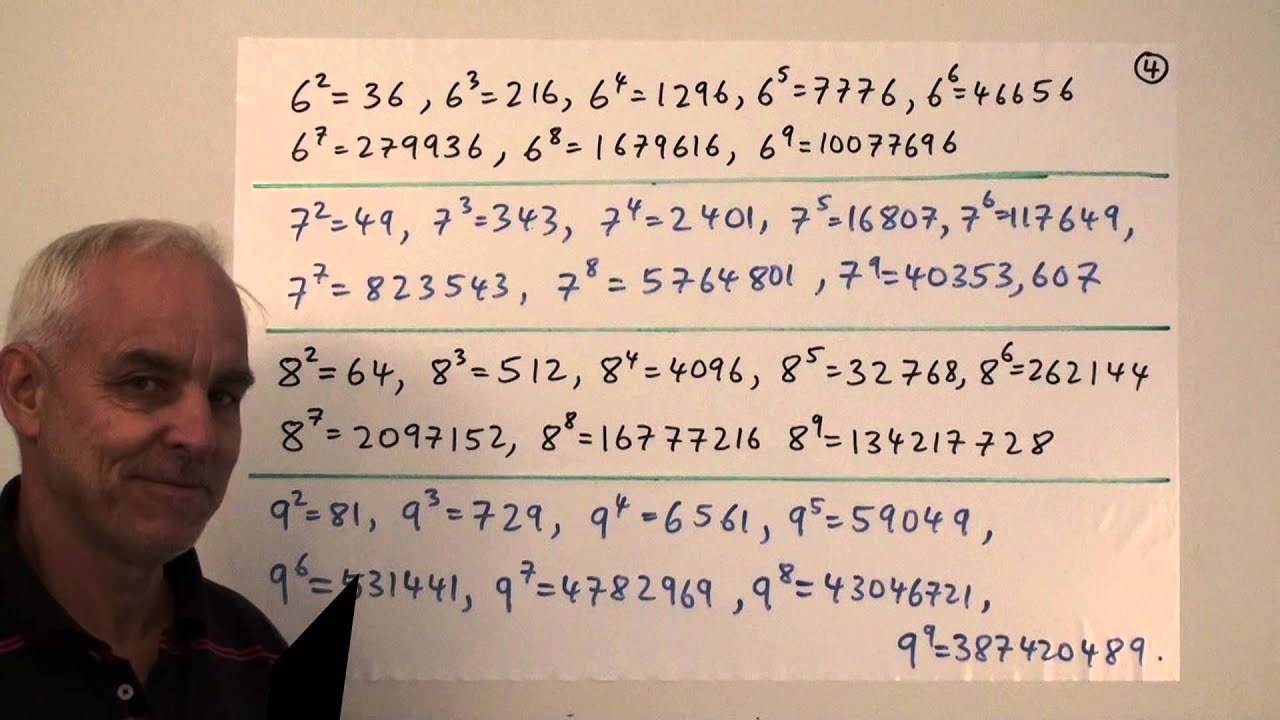 ④
6²=36, 6³=216, 6⁴=1296, 6⁵=7776, 6⁶=46656
6⁷=279936, 6⁸=1679616, 6⁹=10077696
7²=49, 7³=343, 7⁴=2401, 7⁵=16807, 7⁶=117649,
7⁷=823543, 7⁸=5764801, 7⁹=40353,607
8²=64, 8³=512, 8⁴=4096, 8⁵=32768, 8⁶=262144
8⁷=2097152, 8⁸=16777216 8⁹=134217728
9²=81, 9³=729, 9⁴=6561, 9⁵=59049,
9⁶=531441, 9⁷=4782969, 9⁸=43046721,
9⁹=387420489.